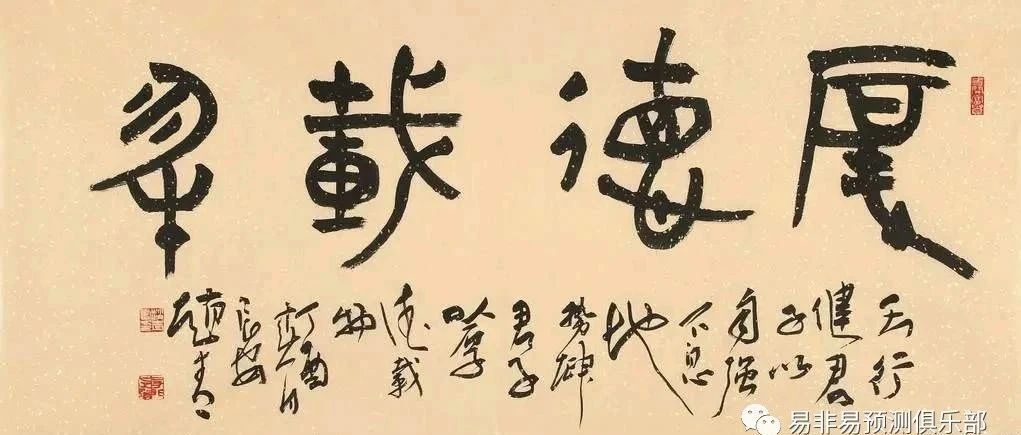 厚德載物
天行
健君
子以
自强
不息
地
勢坤
君子
以厚
德載
物
丁酉
長安
易非易预测俱乐部